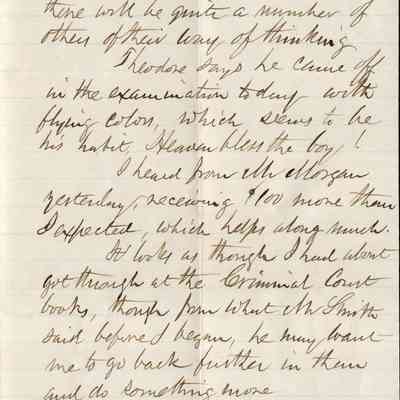 there will be quite a number of
others of their way of thinking
Theodore says he came off
in the examination today with
flying colors, which seems to be
his habit, Heaven bless the boy!
I heard from Mr Morgan
yesterday, receiving $100 more than
I expected, which helps along much.
It looks as though I had about
got through at the Criminal Court
books, though from what Mr Smith
said before I began, he may want
me to go back further in them
and do something more